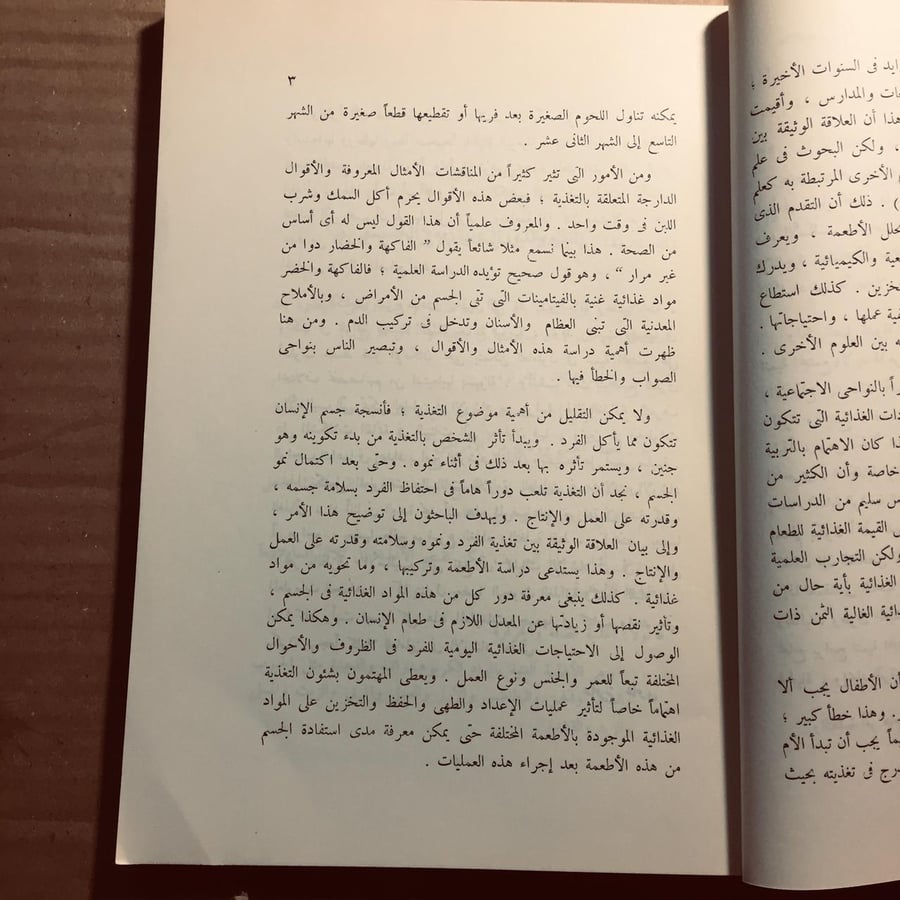 ايد فى السنوات الأخيرة ؛
والمدارس ، وأقيمت
هذا أن العلاقة الوثيقة بين
، ولكن البحوث فى علم
الأخرى المرتبطة به كعلم
) . ذلك أن التقدم الذى
الأطعمة ، ويعرف
والكيميائية ، ويدرك
كذلك استطاع
عملها ، واحتياجاتها .
بين العلوم الأخرى .
بالنواحى الاجتماعية ،
الغذائية التى تتكون
كان الاهتمام بالتربية
خاصة وأن الكثير من
سليم من الدراسات
القيمة الغذائية للطعام
ولكن التجارب العلمية
الغذائية بأية حال من
الغالية الثمن ذات
أن الأطفال يجب ألا
وهذا خطأ كبير ؛
يجب أن تبدأ الأم
فى تغذيته بحيث
٣
يمكنه تناول اللحوم الصغيرة بعد فريها أو تقطيعها قطعاً صغيرة من الشهر
التاسع إلى الشهر الثانى عشر .
ومن الأمور التى تثير كثيراً من المناقشات الأمثال المعروفة والأقوال
الدارجة المتعلقة بالتغذية ؛ فبعض هذه الأقوال يحرم أكل السمك وشرب
اللبن فى وقت واحد . والمعروف علمياً أن هذا القول ليس له أى أساس
من الصحة . هذا بينما نسمع مثلا شائعاً يقول ” الفاكهة والخضار دوا من
غير مرار “ ، وهو قول صحيح تؤيده الدراسة العلمية ؛ فالفاكهة والخضر
مواد غذائية غنية بالفيتامينات التى تقى الجسم من الأمراض ، وبالأملاح
المعدنية التى تبنى العظام والأسنان وتدخل فى تركيب الدم . ومن هنا
ظهرت أهمية دراسة هذه الأمثال والأقوال ، وتبصير الناس بنواحى
الصواب والخطأ فيها .
ولا يمكن التقليل من أهمية موضوع التغذية ؛ فأنسجة جسم الإنسان
تتكون مما يأكل الفرد . ويبدأ تأثر الشخص بالتغذية من بدء تكوينه وهو
جنين ، ويستمر تأثره بها بعد ذلك فى أثناء نموه . وحتى بعد اكتمال نمو
الجسم ، نجد أن التغذية تلعب دوراً هاماً فى احتفاظ الفرد بسلامة جسمه ،
وقدرته على العمل والإنتاج . ويهدف الباحثون إلى توضيح هذا الأمر ،
وإلى بيان العلاقة الوثيقة بين تغذية الفرد ونموه وسلامته وقدرته على العمل
والإنتاج . وهذا يستدعى دراسة الأطعمة وتركيبها ، وما تحويه من مواد
غذائية . كذلك ينبغى معرفة دور كل من هذه المواد الغذائية فى الجسم ،
وتأثير نقصها أو زيادتها عن المعدل اللازم فى طعام الإنسان . وهكذا يمكن
الوصول إلى الاحتياجات الغذائية اليومية للفرد فى الظروف والأحوال
المختلفة تبعاً للعمر والجنس ونوع العمل . ويعطى المهتمون بشئون التغذية
اهتماماً خاصاً لتأثير عمليات الإعداد والطهى والحفظ والتخزين على المواد
الغذائية الموجودة بالأطعمة المختلفة حتى يمكن معرفة مدى استفادة الجسم
من هذه الأطعمة بعد إجراء هذه العمليات .